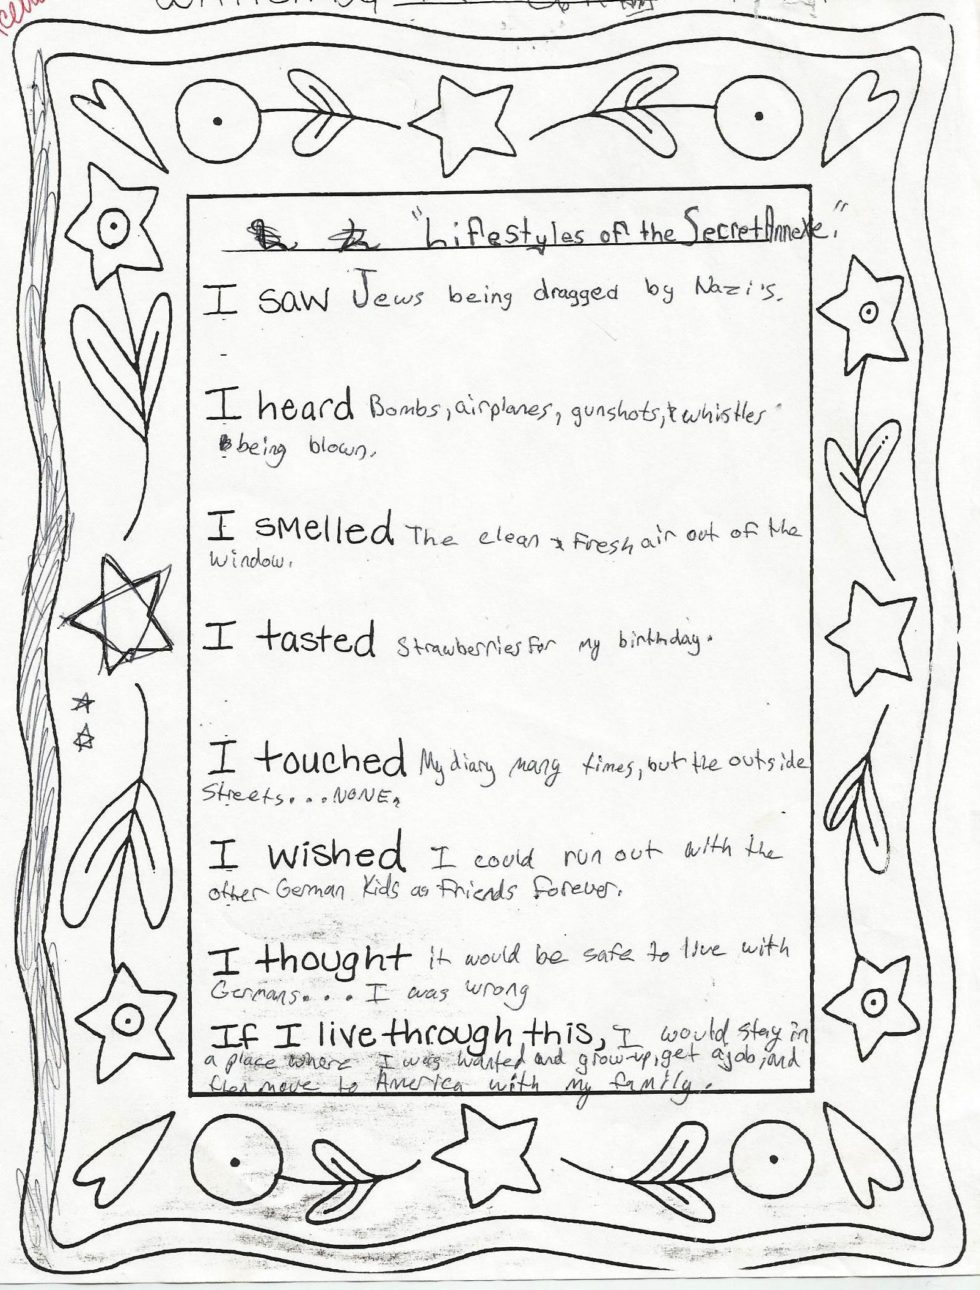 "Lifestyles of the Secret Annexe."
I saw Jews being dragged by Nazi's.
I heard Bombs, airplanes, gunshots, & whistles
being blown.
I smelled The clean & Fresh air out of the
window.
I tasted Strawberries for my birthday.
I touched My diary many times, but the outside
Streets... NONE.
I wished I could run out with the
other German Kids as Friends Forever.
I thought it would be safe to live with
Germans.... I was wrong
If I live through this, I would stay in
a place where I was wanted and grow-up, get a job, and
then move to America with my family.